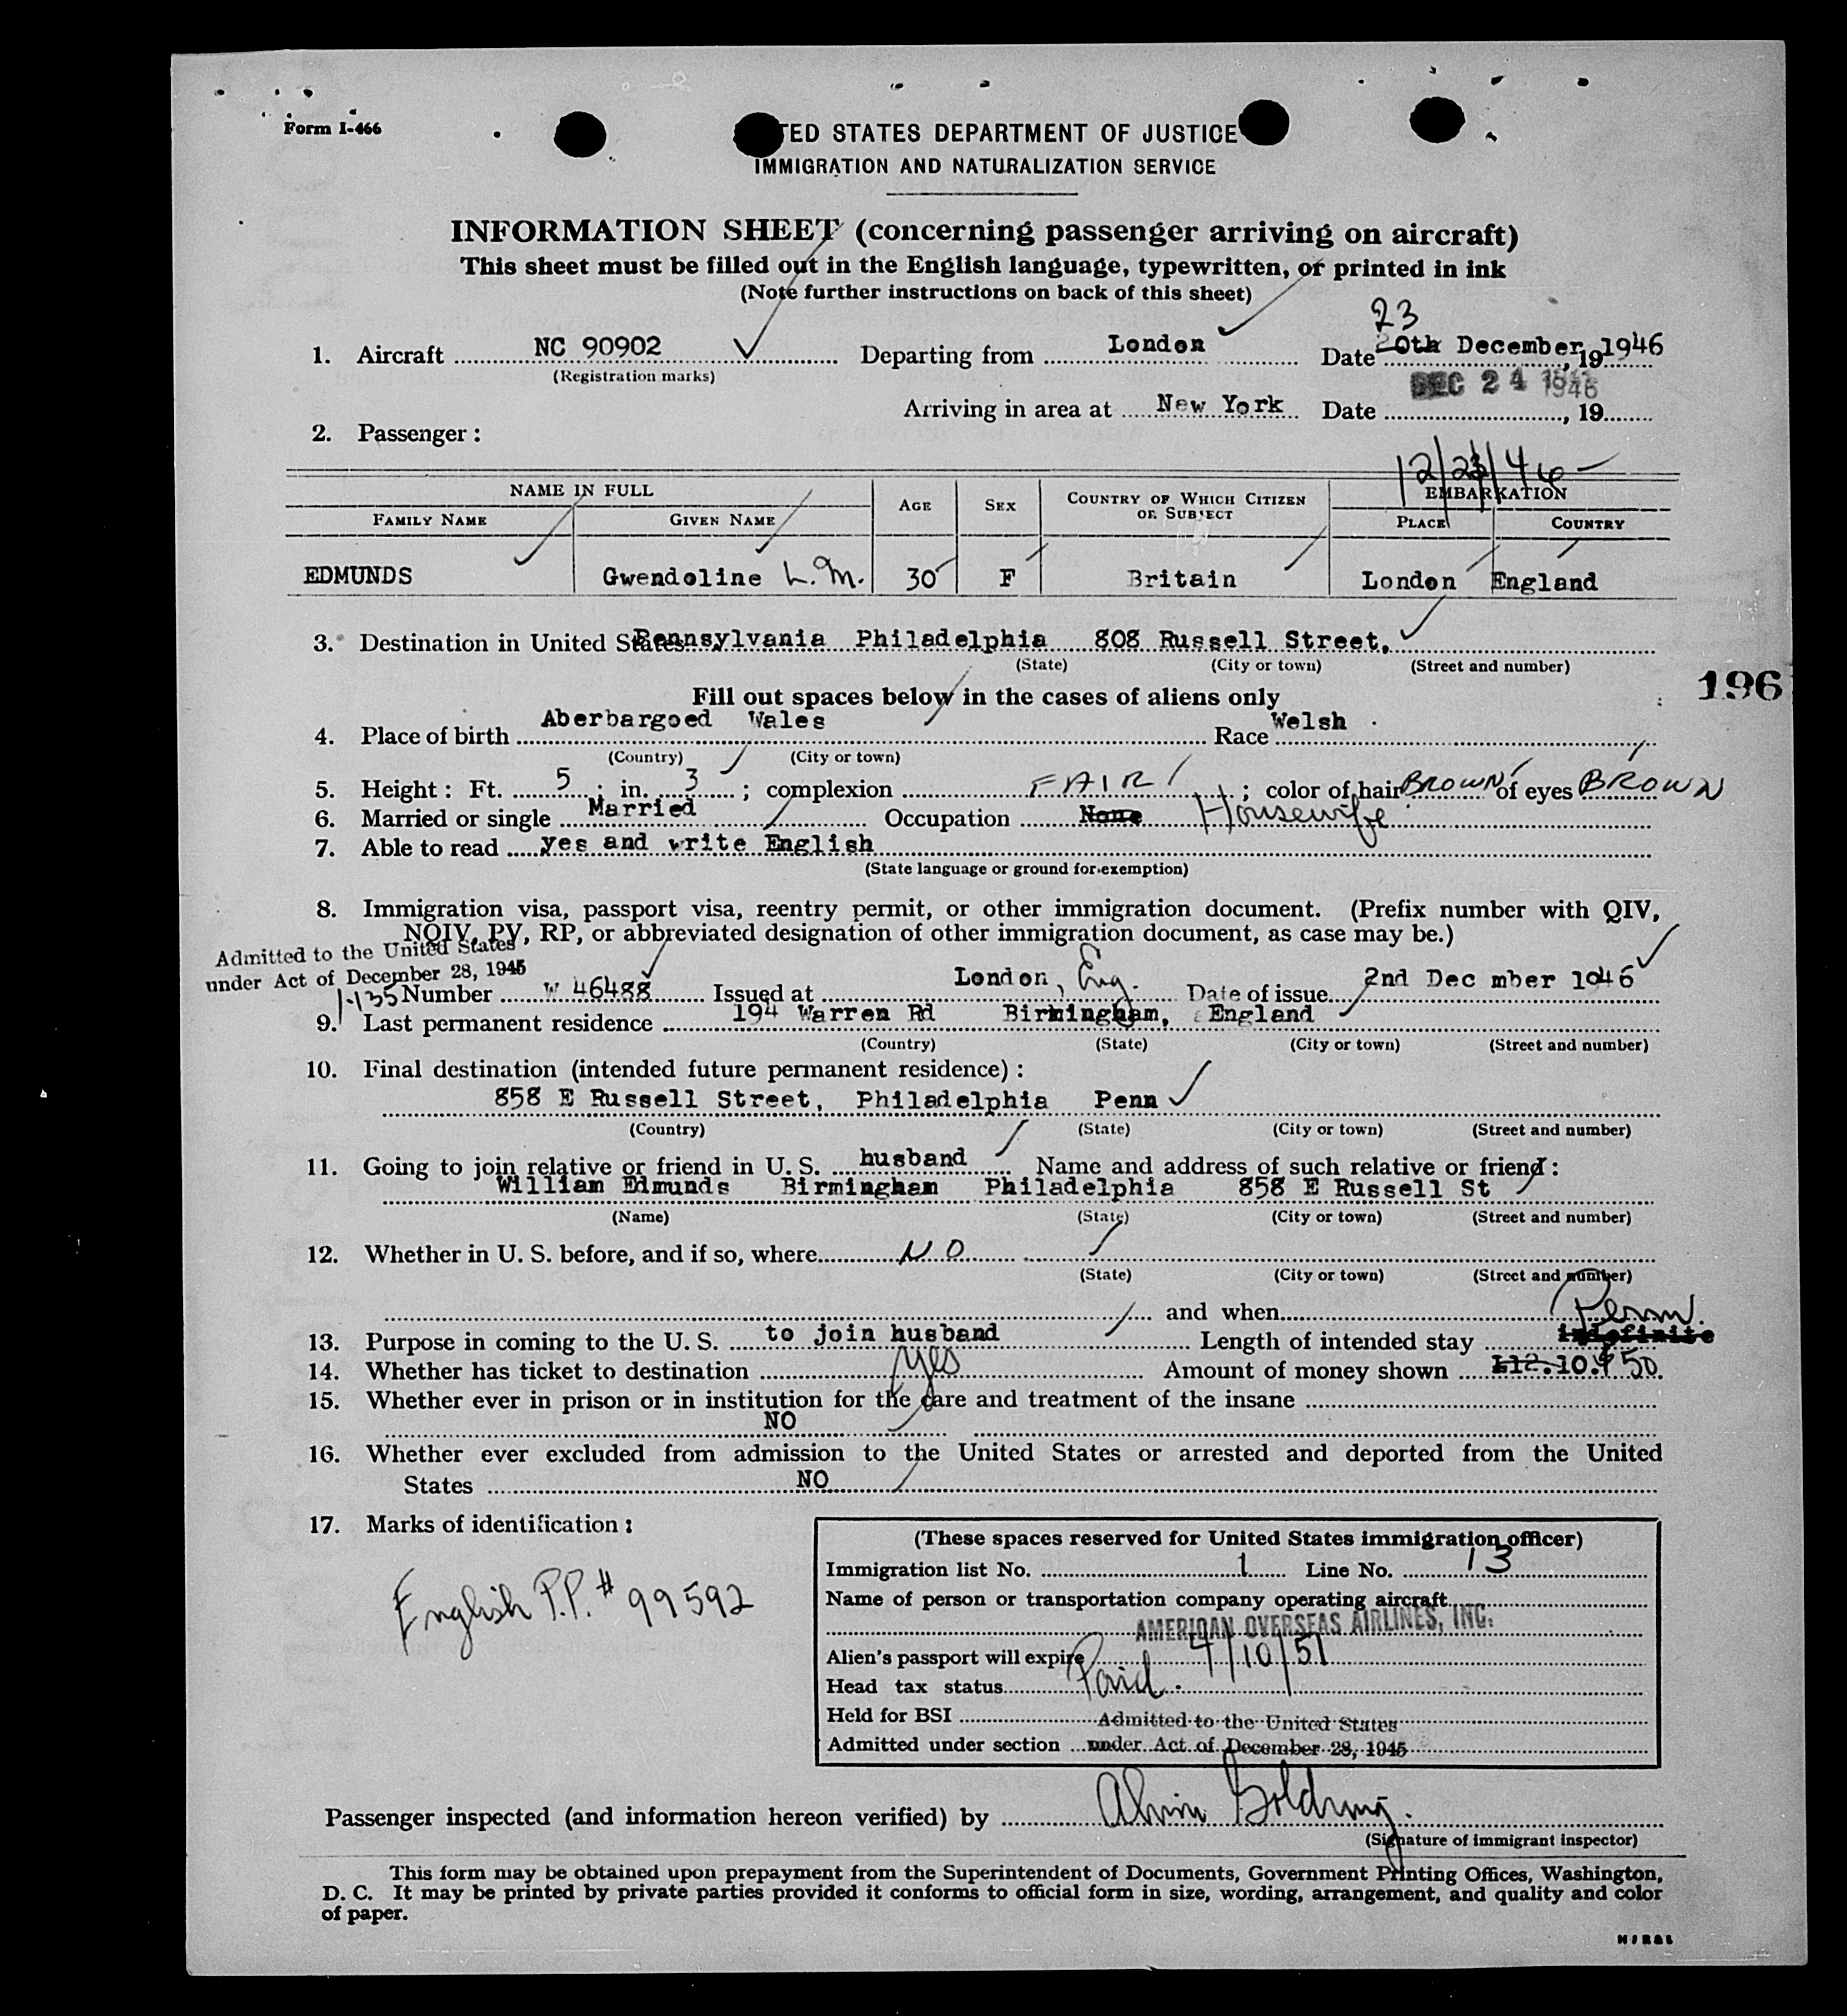 Form I-466
TED STATES DEPARTMENT OF JUSTICE
IMMIGRATION AND NATURALIZATION SERVICE
INFORMATION SHEET (concerning passenger arriving on aircraft)
This sheet must be filled out in the English language, typewritten, or printed in ink
(Note further instructions on back of this sheet)
23
1. Aircraft NC 90902 Departing from London Date 20th December, 19 1946
(Registration marks)
DEC 24 1946
Arriving in area at New York Date , 19
2. Passenger:
12/23/46
NAME IN FULL AGE SEX COUNTRY OF WHICH CITIZEN OR SUBJECT EMBARKATION
FAMILY NAME GIVEN NAME PLACE COUNTRY
EDMUNDS Gwendoline L.M. 30 F Britain London England
3. Destination in United States Pennsylvania Philadelphia 808 Russell Street,
(State) (City or town) (Street and number)
196
Fill out spaces below in the cases of aliens only
4. Place of birth Aberbargoed Wales Race Welsh
(Country) (City or town)
5. Height: Ft. 5; in. 3; complexion FAIR; color of hair BROWN of eyes BROWN
6. Married or single Married Occupation None Housewife
7. Able to read yes and write English
(State language or ground for exemption)
8. Immigration visa, passport visa, reentry permit, or other immigration document. (Prefix number with QIV,
NQIV, PV, RP, or abbreviated designation of other immigration document, as case may be.)
Admitted to the United States
under Act of December 28, 1945
Number W 46488 Issued at London, Eng. Date of issue 2nd Dec mber 1946
9. Last permanent residence 194 Warren Rd Birmingham, England
(Country) (State) (City or town) (Street and number)
10. Final destination (intended future permanent residence):
858 E Russell Street, Philadelphia Penn
(Country) (State) (City or town) (Street and number)
11. Going to join relative or friend in U. S. husband Name and address of such relative or friend:
William Edmunds Birmingham Philadelphia 858 E Russell St
(Name) (State) (City or town) (Street and number)
12. Whether in U. S. before, and if so, where NO
(State) (City or town) (Street and number)
and when
Perm.
13. Purpose in coming to the U. S. to join husband Length of intended stay indefinite
14. Whether has ticket to destination yes Amount of money shown L12.10. $50.
15. Whether ever in prison or in institution for the care and treatment of the insane
NO
16. Whether ever excluded from admission to the United States or arrested and deported from the United
States NO
17. Marks of identification:
English P.P. # 99592
(These spaces reserved for United States immigration officer)
Immigration list No. 1 Line No. 13
Name of person or transportation company operating aircraft
AMERICAN OVERSEAS AIRLINES, INC.
Alien's passport will expire 4/10/51
Head tax status Paid.
Held for BSI Admitted to the United States
Admitted under section under Act of December 28, 1945
Passenger inspected (and information hereon verified) by Alvin Goldring.
(Signature of immigrant inspector)
This form may be obtained upon prepayment from the Superintendent of Documents, Government Printing Offices, Washington,
D. C. It may be printed by private parties provided it conforms to official form in size, wording, arrangement, and quality and color
of paper.